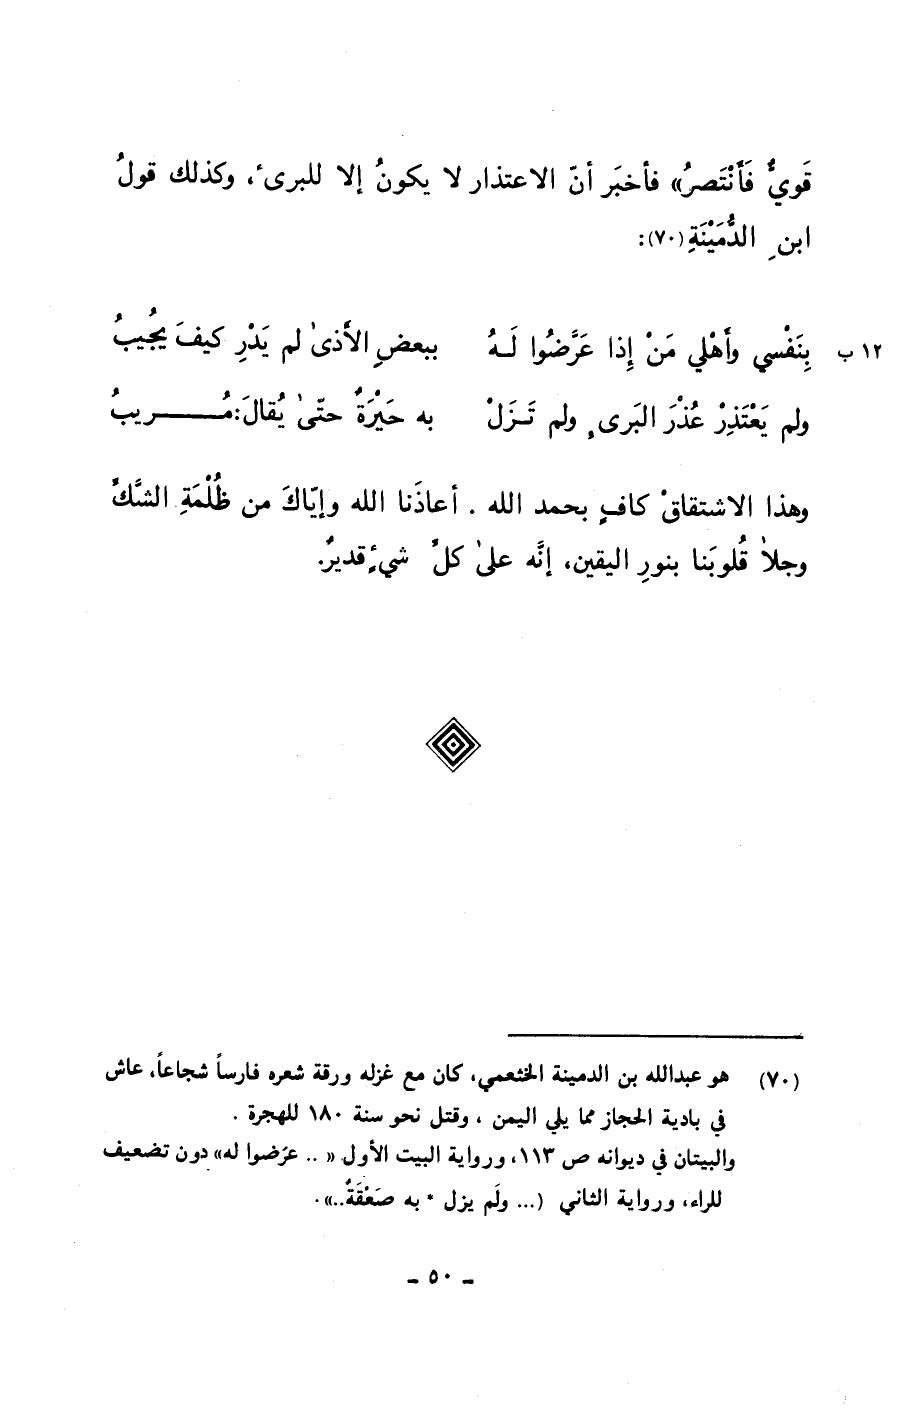 قَويٌّ فَأَنْتَصرُ» فأخبَر أنّ الاعتذار لا يكونُ إلا للبرىء، وكذلك قولُ
ابنِ الدُّمَيْنَةِ(٧٠):
١٢ ب بِنَفْسي وأَهْلي مَنْ إِذا عَرَّضُوا لَـهُ ببعضِ الأَذىٰ لم يَدْرِ كيفَ يجُيبُ
ولم يَعْتَذِرْ عُذْرَ البَرىءِ ولم تَـزَلْ به حَيْرَةٌ حتّىٰ يُقالَ:مُـــــريبُ
وهذا الاشتقاقْ كافٍ بحمد الله . أعاذَنا الله وإيّاكَ من ظُلْمَةِ الشَّكِّ
وجلاٰ قُلوبَنا بنورِ اليقين، إنَّه علىٰ كلِّ شيءٍ قديرٌ.
(٧٠) هو عبدالله بن الدمينة الخثعمي، كان مع غزله ورقة شعره فارساً شجاعاً، عاش
في بادية الحجاز مما يلي اليمن ، وقتل نحو سنة ١٨٠ للهجرة .
والبيتان في ديوانه ص ١١٣، ورواية البيت الأول « .. عرَضوا له» دون تضعيف
للراء، ورواية الثاني (... ولَم يزل * به صَعْقَةٌ..».
ـ ٥٠ ـ